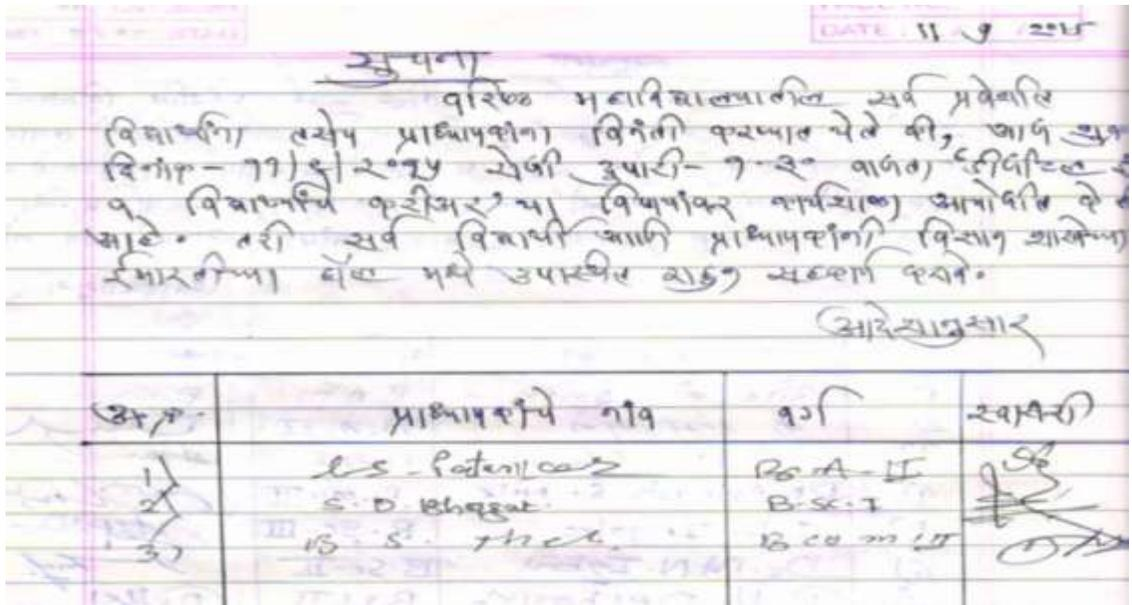 DATE 11 9 2015
सुचना
वरिष्ठ महाविद्यालयातील सर्व प्रवेशित
विद्यार्थांना तसेच प्राध्यापकांना विनंती करण्यात येते की, आज शुक्र
दिनांक - 11/9/२०१५ रोजी दुपारी - १.३० वाजता, 'डीजीटल इं
व विद्यार्थ्यांचे करीअर' या विषयांवर कार्यशाळा आयोजीत के
आहे. तरी सर्व विद्यार्थी आणि प्राध्यापकांनी विज्ञान शाखेच्या
ईमारतीच्या हॉल मध्ये उपास्थित राहुन सहकार्य करावे.
आदेशानुसार
अ.क्र. प्राध्यापकांचे नांव वर्ग स्वाक्षरी
1) B.A-II
2) S.D. Bhagat. B.Sc.I
3) B. S. B com III